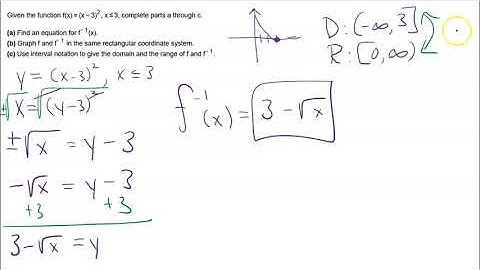 Given the function f(x) = (x − 3)², x ≤ 3, complete parts a through c.
(a) Find an equation for f⁻¹(x).
(b) Graph f and f⁻¹ in the same rectangular coordinate system.
(c) Use interval notation to give the domain and the range of f and f⁻¹.
y = (x-3)², x ≤ 3
±√x = √(y-3)²
±√x = y - 3
-√x = y - 3
+3 +3
3 - √x = y
f⁻¹(x) = 3 - √x
D: (-∞, 3]
R: [0, ∞)